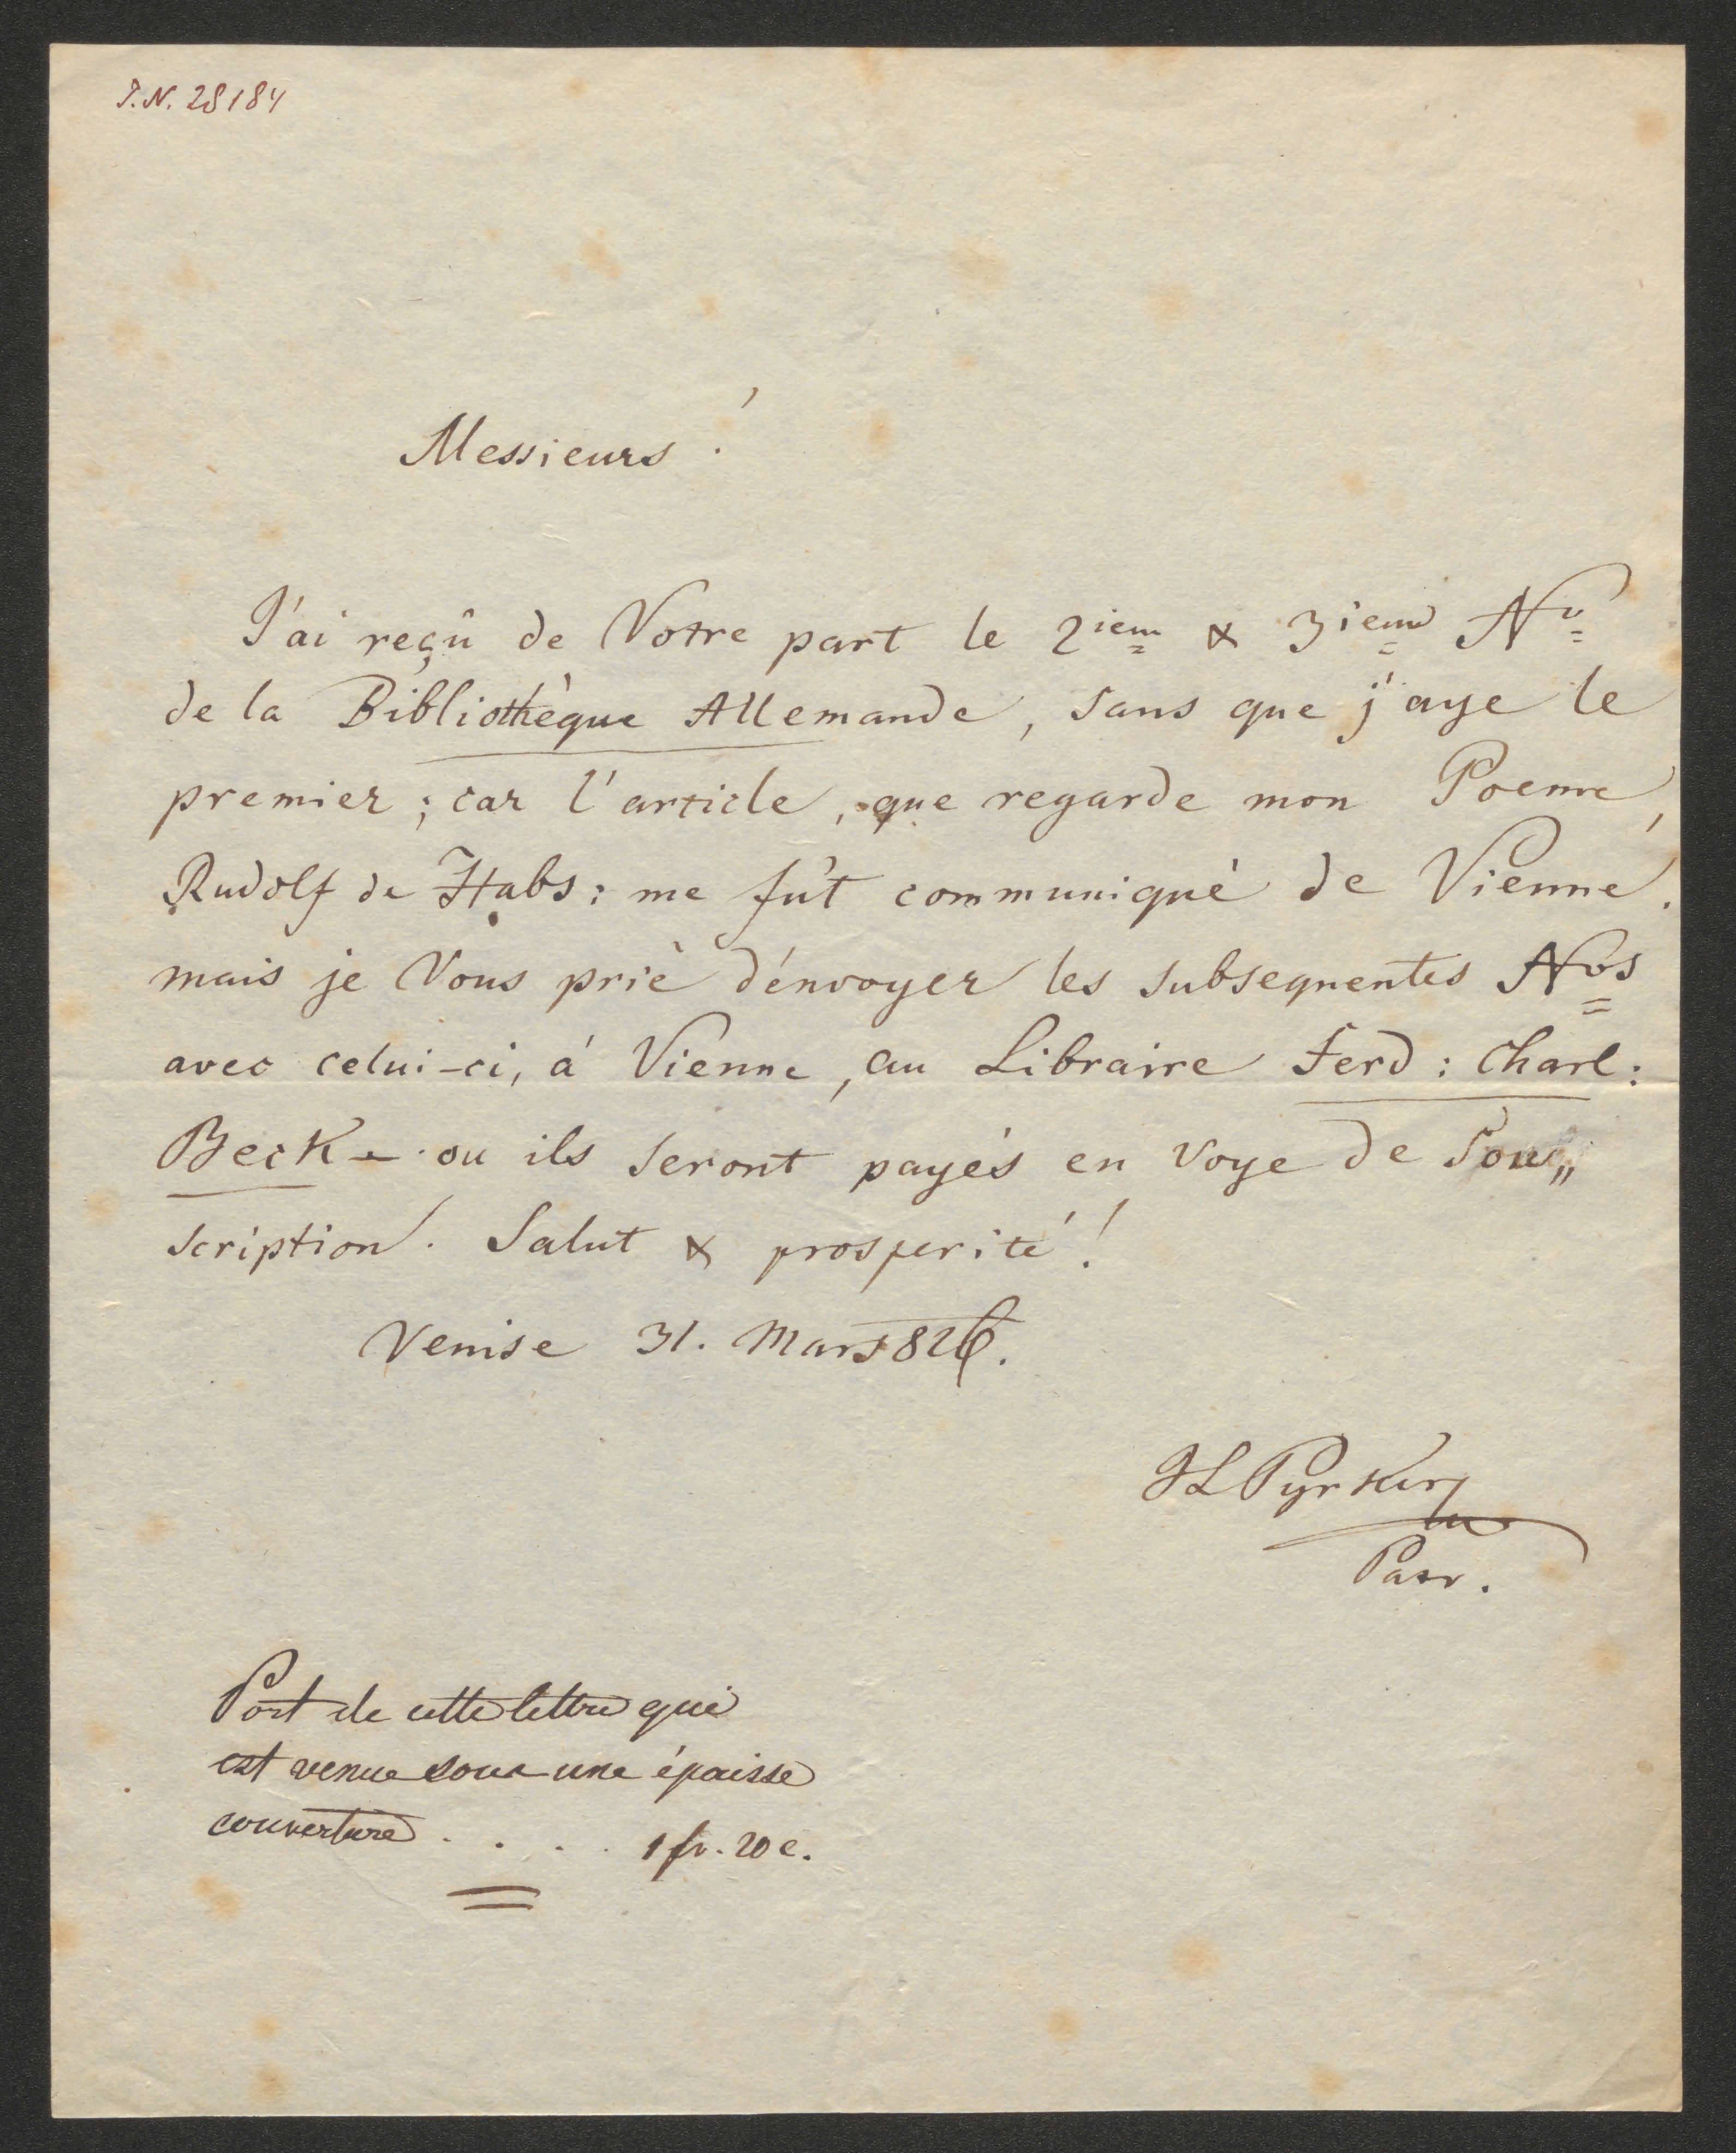 I.N. 28184
Messieurs !
J'ai reçû de Votre part le 2iem & 3ieme No
de la Bibliothèque Allemande, sans que j'aye le
premier; car l'article, que regarde mon Poeme,
Rudolf de Habs: me fût communiqué de Vienne.
mais je Vous priè d'énvoyer les subsequentes Nos
avec celui-ci, á Vienne, au Libraire Ferd: Charl:
Beck – ou ils seront payés en voye de Sous„
scription. Salut & prosperité!
Venise 31. Mars 826.
JLPyrker
Patr.
Port de cette lettre qui
est venue sous une épaisse
couverture . . . . 1 fr. 20 c.